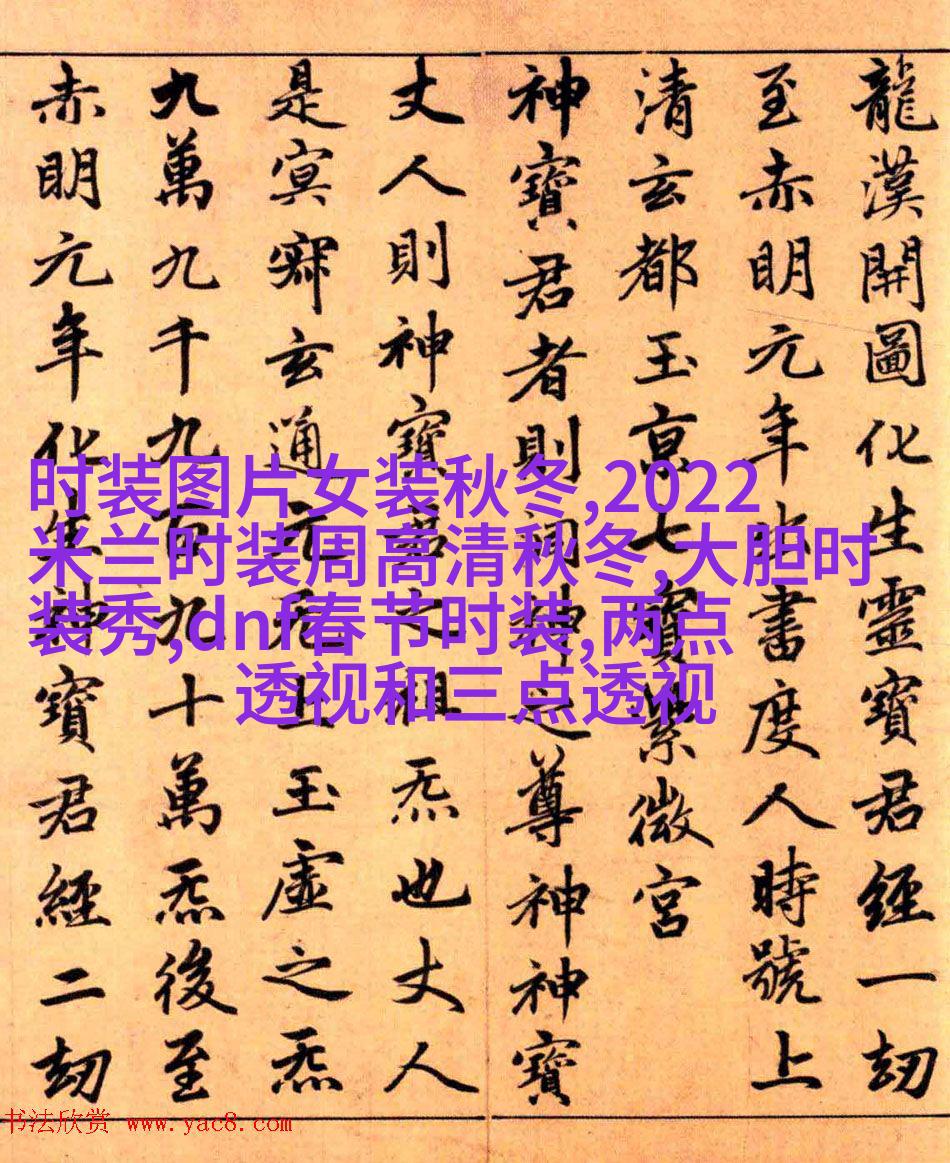 龍漢開圖化生靈寶君經一劫
至赤明元年出書度人時號上
清玄都玉京七寶紫微宮
神寶君者則洞神之尊神神寶
丈人則神寶君之祖炁也丈人
是冥寂玄通元无上玉虛之炁
九萬九千九百九十萬炁後至
赤明元年化生神寶君經二劫
时装图片女装秋冬,2022
米兰时装周高清秋冬,大胆时
装秀,dnf春节时装,两点
透视和三点透视
书法欣赏 www.yac8.com